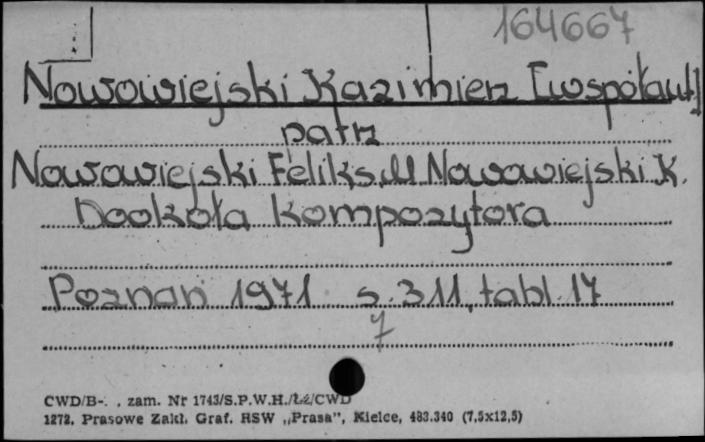 164667
Nowowiejski Kazimierz [współaut]
patrz
Nowowiejski Feliks M. Nowowiejski K.
Dookoła kompozytora
Poznań 1971 s. 311, tabl. 17
7
CWD/B-. . zam. Nr 1743/S.P.W.H./Łź/CWD
1272. Prasowe Zakł. Graf. RSW „Prasa”, Kielce, 483.340 (7,5x12,5)